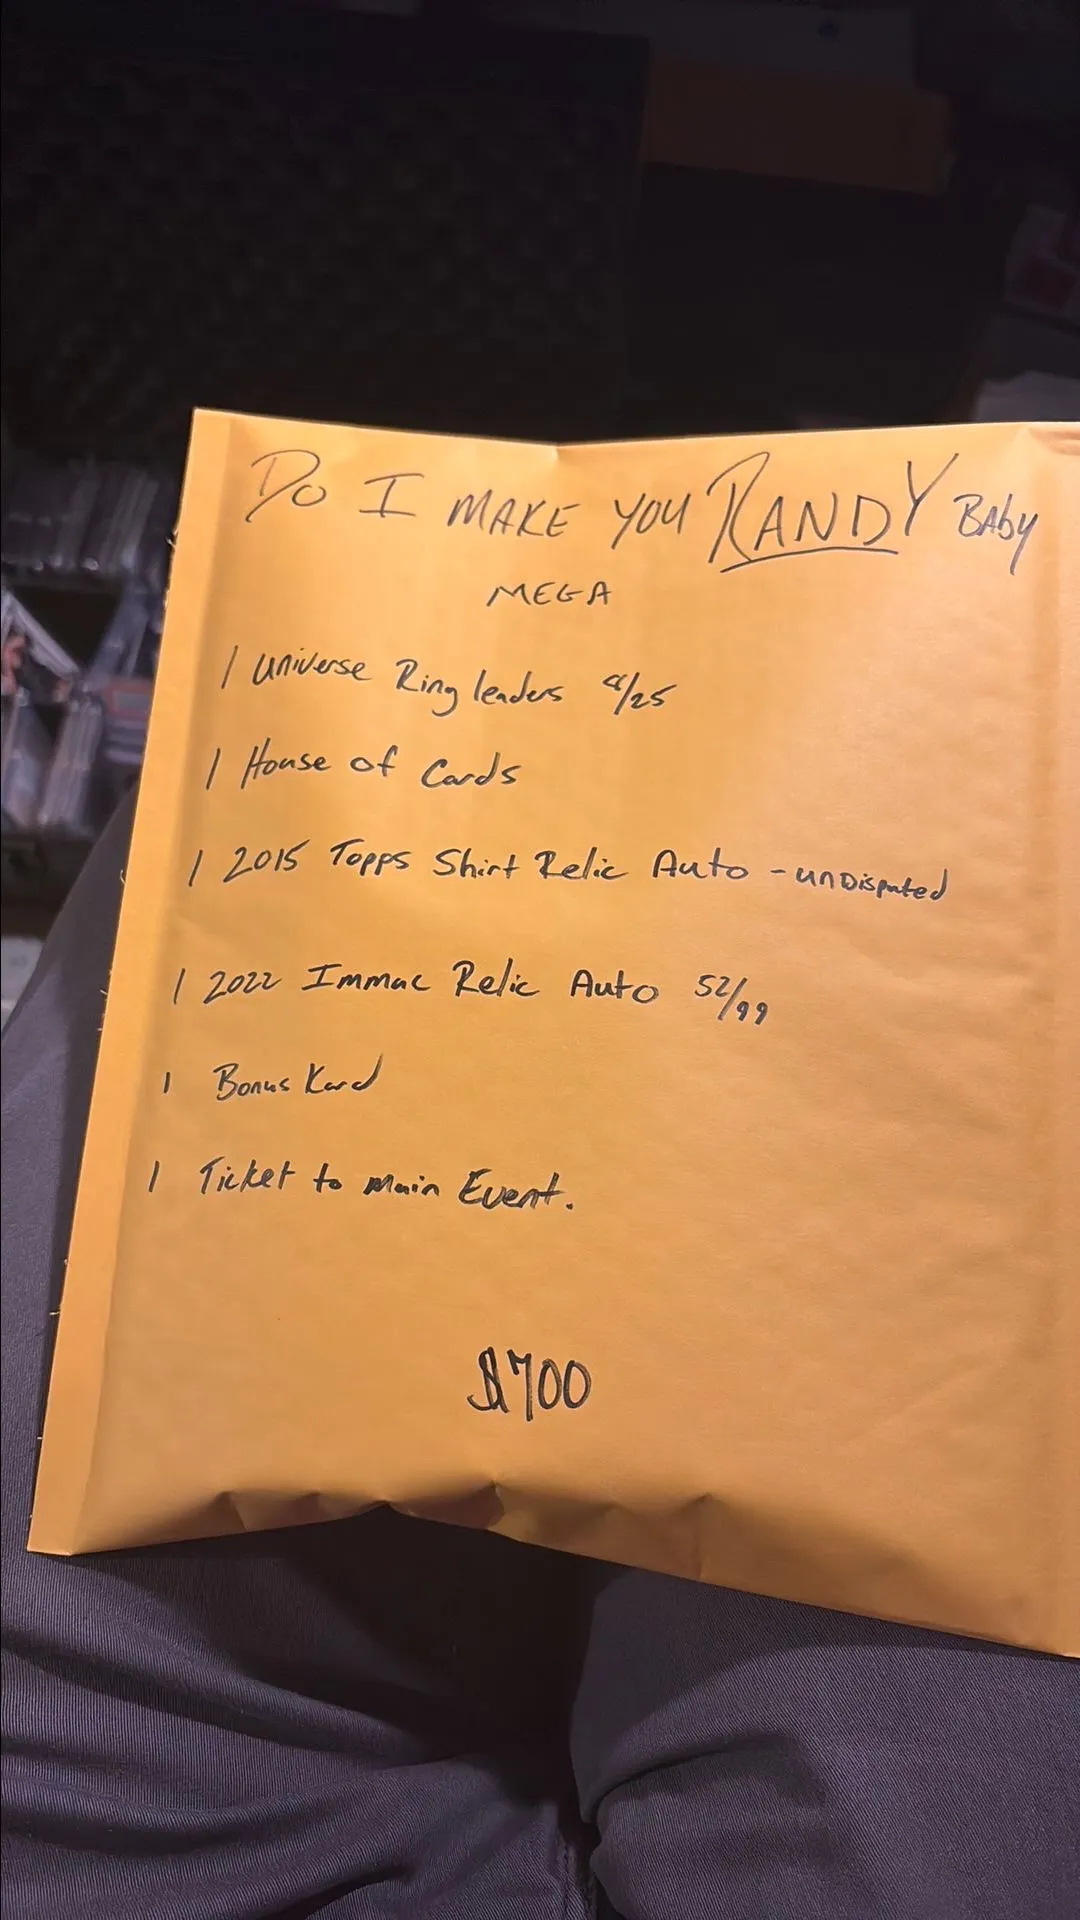 Do I MAKE YOU RANDY BAby
MEGA
1 Universe Ring leaders 8/25
1 House of Cards
1 2015 Topps Shirt Relic Auto - unDisputed
1 2022 Immac Relic Auto 52/99
1 Bonus Kard
1 Ticket to Main Event.
$700